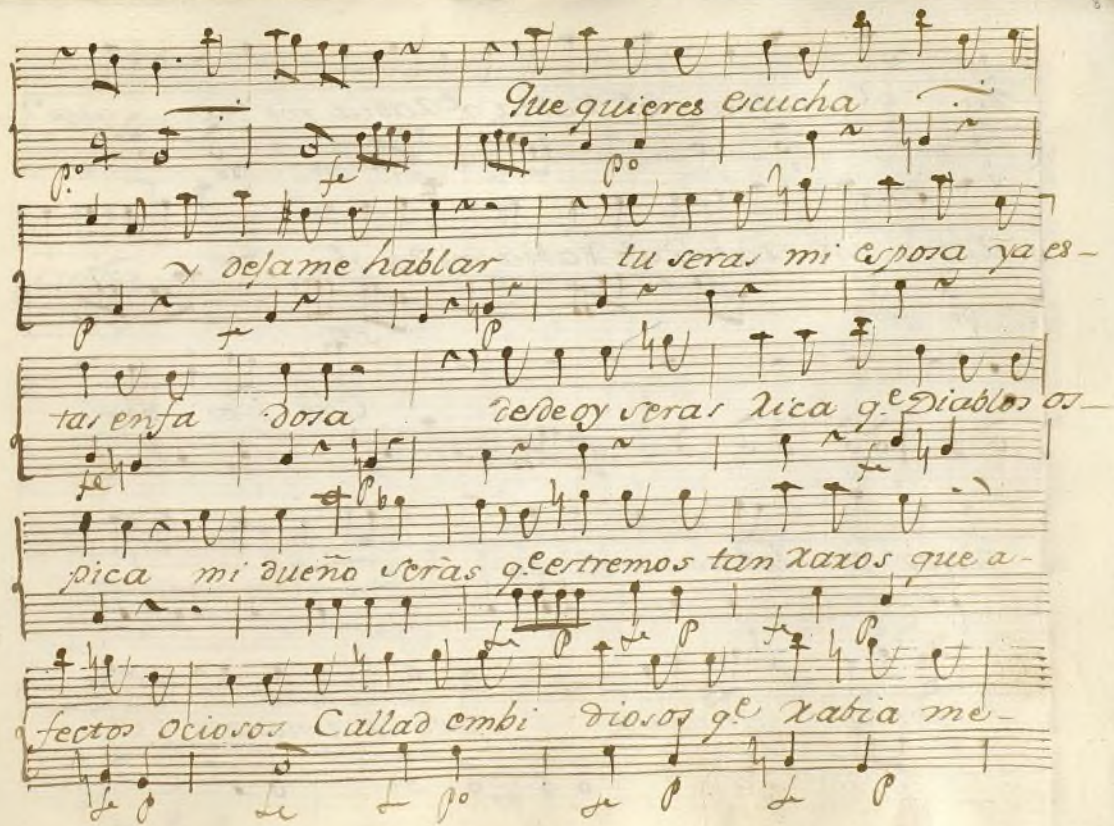 Que quieres escucha
p.o fe po
y dejame hablar tu seras mi esposa ya es-
p fe p
tas enfa dosa desde oy seras rica q.e Diablos os-
fe p fe
pica mi dueño seràs q.e estremos tan raros que a-
fe p fe p fe p
fectos ociosos Callad embi diosos q.e rabia me-
fe p fe f po fe p fe p